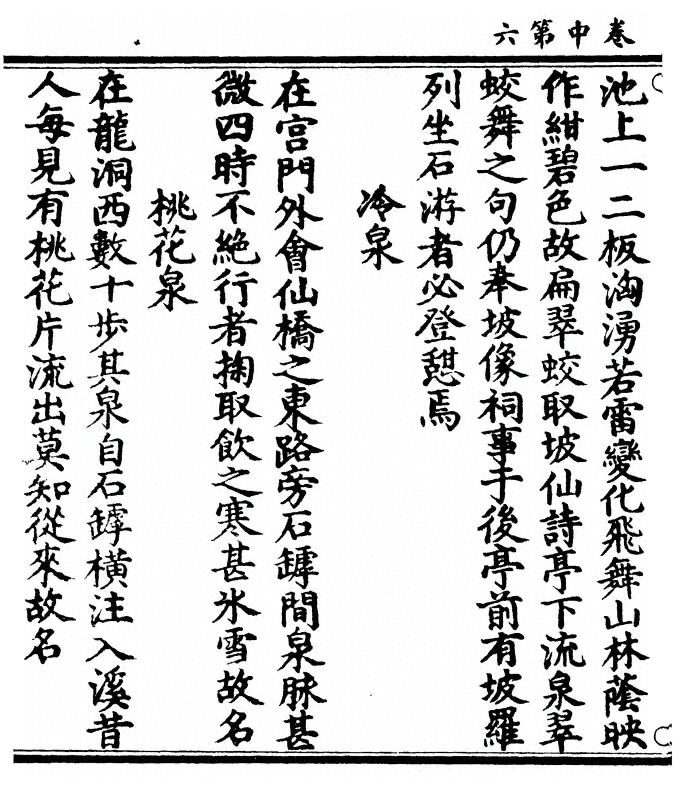 卷中第六
池上一二板洶湧若雷變化飛舞山林蔭映
作紺碧色故扁翠蛟取坡仙詩亭下流泉翠
蛟舞之句仍奉坡像祠事于後亭前有坡羅
列坐石游者必登憩焉
冷泉
在宫門外會仙橋之東路旁石罅間泉脉甚
微四時不絶行者掬取飲之寒甚氷雪故名
桃花泉
在龍洞西數十步其泉自石罅橫注入溪昔
人每見有桃花片流出莫知從來故名